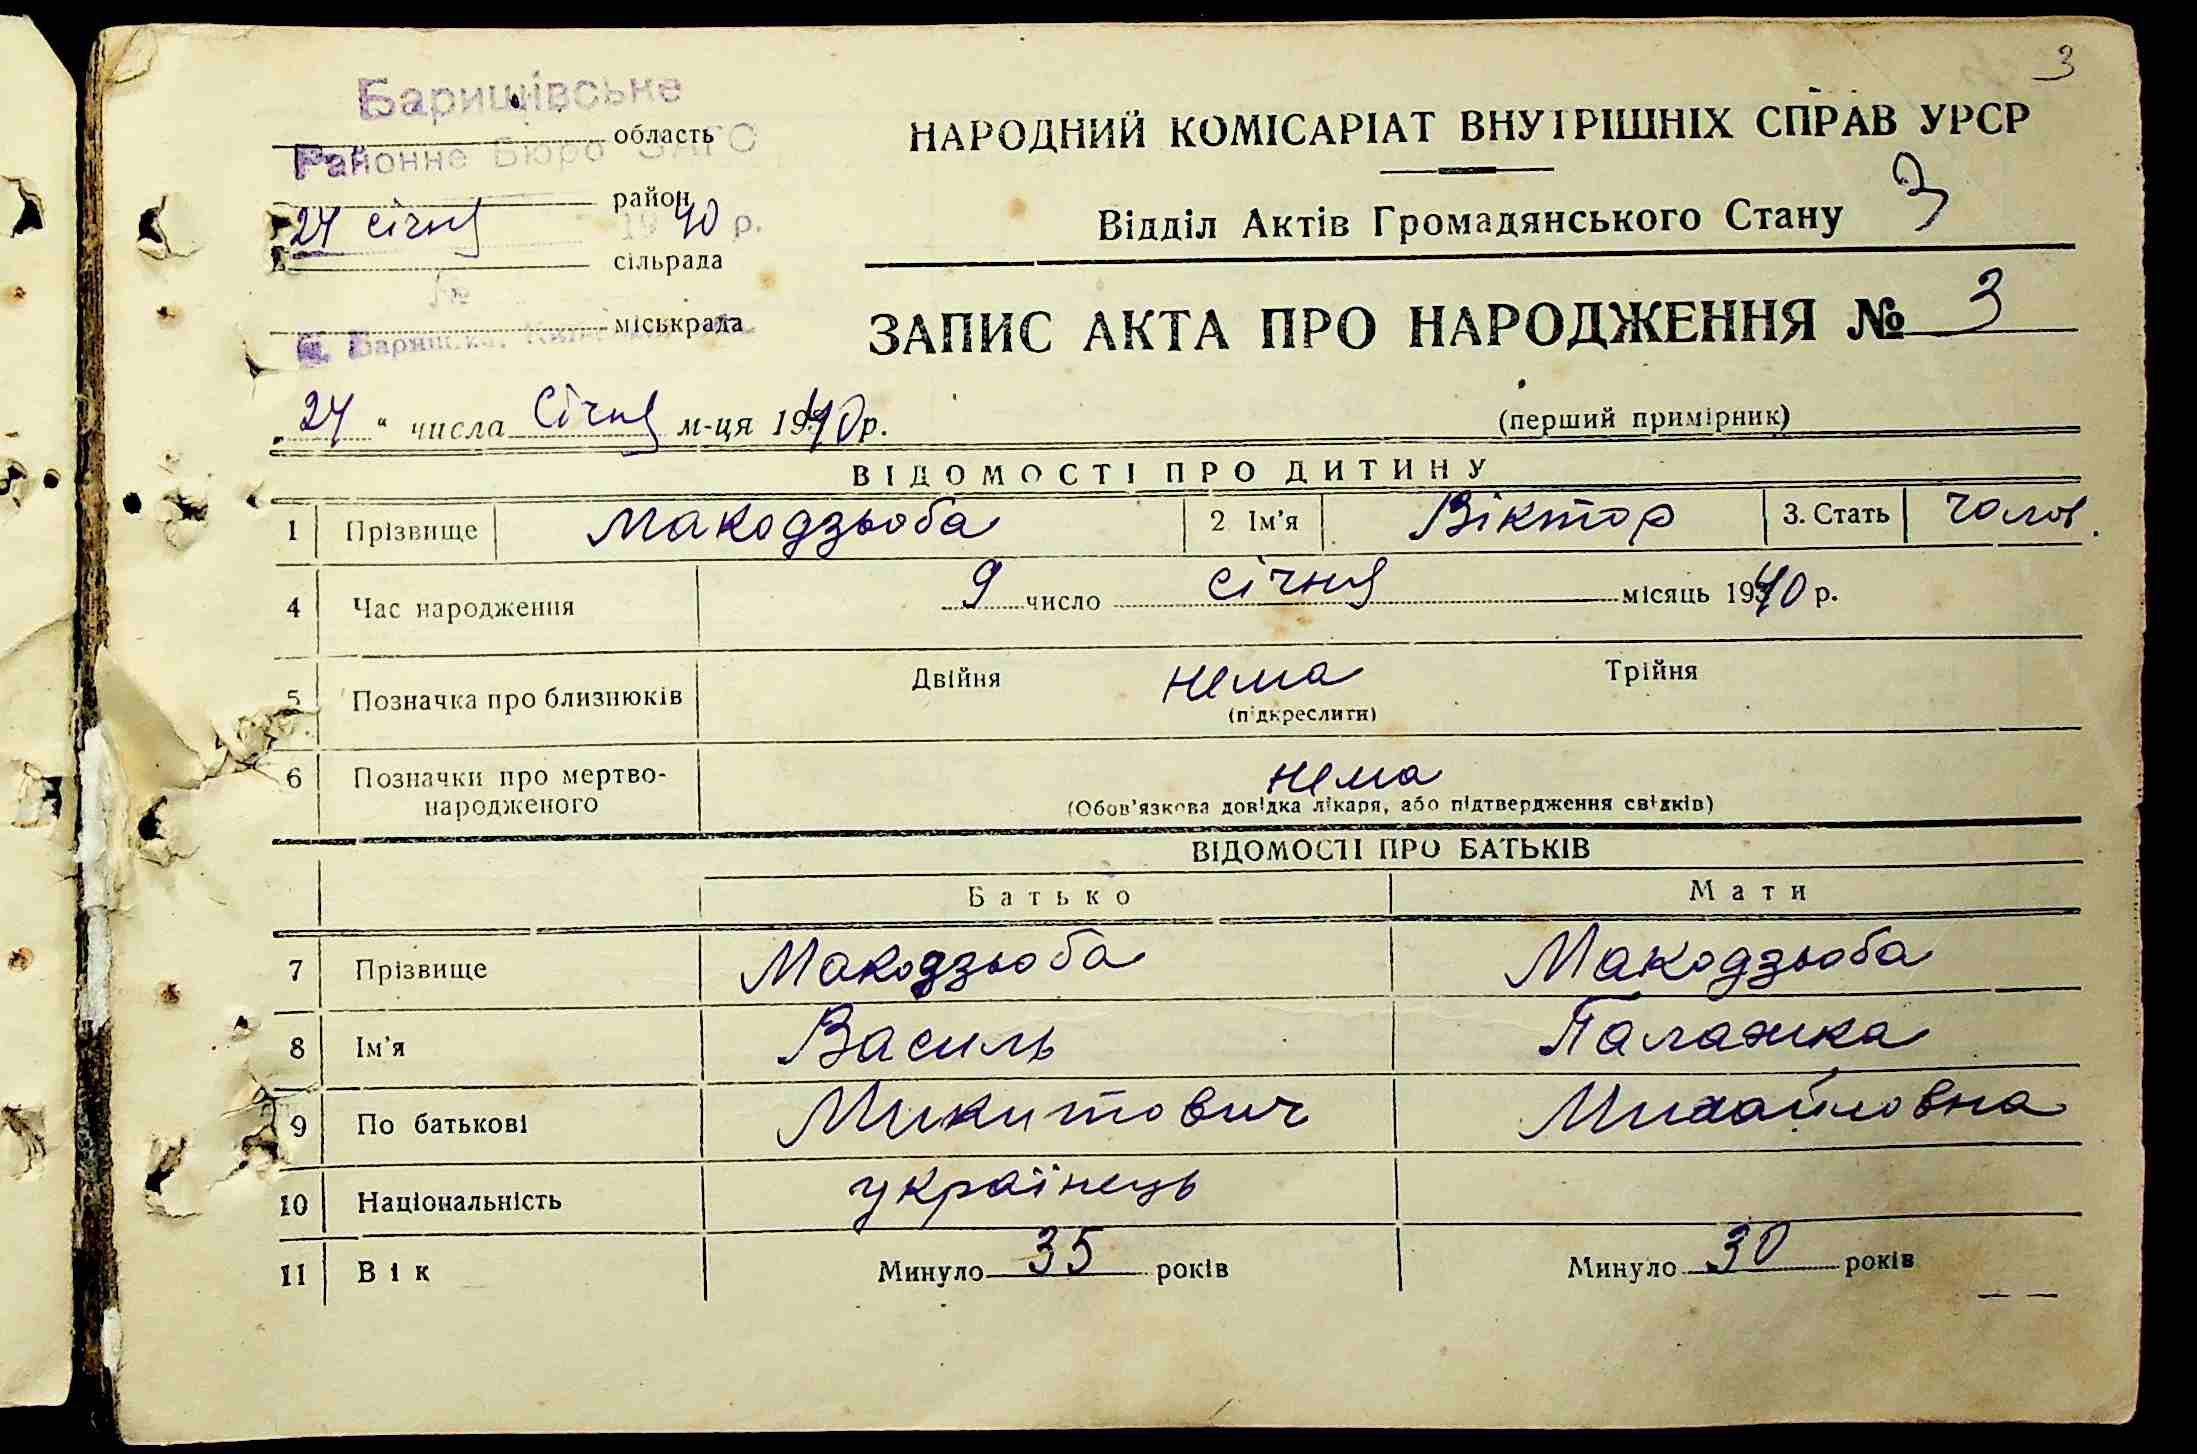 3
Барищівське
область
Районне Бюро ЗАГС
район
24 січня 1940 р.
сільрада
№
міськрада
НАРОДНИЙ КОМІСАРІАТ ВНУТРІШНІХ СПРАВ УРСР
Відділ Актів Громадянського Стану 3
ЗАПИС АКТА ПРО НАРОДЖЕННЯ № 3
„24“ числа Січня м-ця 1940 р.
(перший примірник)
ВІДОМОСТІ ПРО ДИТИНУ
1 Прізвище Макодзьоба 2 Ім’я Віктор 3. Стать чолов.
4 Час народження 9 число січня місяць 1940 р.
5 Позначка про близнюків Двійня нема Трійня
(підкреслити)
6 Позначки про мертво-
народженого
нема
(Обов’язкова довідка лікаря, або підтвердження свідків)
ВІДОМОСТІ ПРО БАТЬКІВ
Батько Мати
7 Прізвище Макодзьоба Макодзьоба
8 Ім’я Василь Палажка
9 По батькові Микитович Михайловна
10 Національність українець
11 Вік Минуло 35 років Минуло 30 років